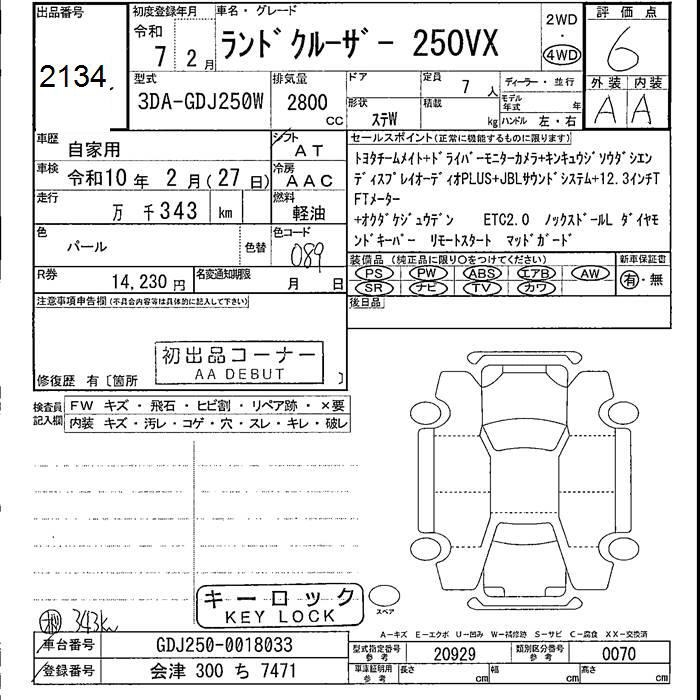 出品番号
2134
初度登録年月
令和
7 2月
車名・グレード
ランドクルーザー 250VX
2WD
4WD
評価点
6
外装 内装
A A
型式
3DA-GDJ250W
排気量
2800
CC
ドア
形状
ステW
定員
7人
積載
kg
ディーラー・並行
モデル年式 年
ハンドル 左・右
車歴
自家用
シフト
AT
車検
令和10年 2月(27日)
冷房
AAC
走行
万 千343 km
燃料
軽油
色
パール
色替
色コード
089
R券
14,230円
名変通知期限
月 日
セールスポイント(正常に機能するものに限ります)
トヨタチームメイト+ドライバーモニターカメラ+キンキュウジソウダシエン
ディスプレイオーディオPLUS+JBLサウンドシステム+12.3インチT
FTメーター
+オクダケジュウデン ETC2.0 ノックスドールL ダイヤモ
ンドキーパー リモートスタート マッドガード
装備品 (純正品に限り○をつけてください)
PS PW ABS エアB AW
SR ナビ TV カワ
新車保証書
有・無
後日品
注意事項申告欄(不具合内容等は具体的に記入して下さい)
初出品コーナー
AA DEBUT
修復歴 有〔箇所 〕
検査員記入欄
FW キズ・飛石・ヒビ割・リペア跡・×要
内装 キズ・汚レ・コゲ・穴・スレ・キレ・破レ
キーロック
KEY LOCK
スペア
343km
A-キズ E-エクボ U-凹み W-補修跡 S-サビ C-腐食 XX-交換済
車台番号
GDJ250-0018033
登録番号
会津 300 ち 7471
型式指定番号 参考
20929
類別区分番号 参考
0070
車庫証明用 参考
長さ cm 幅 cm 高さ cm